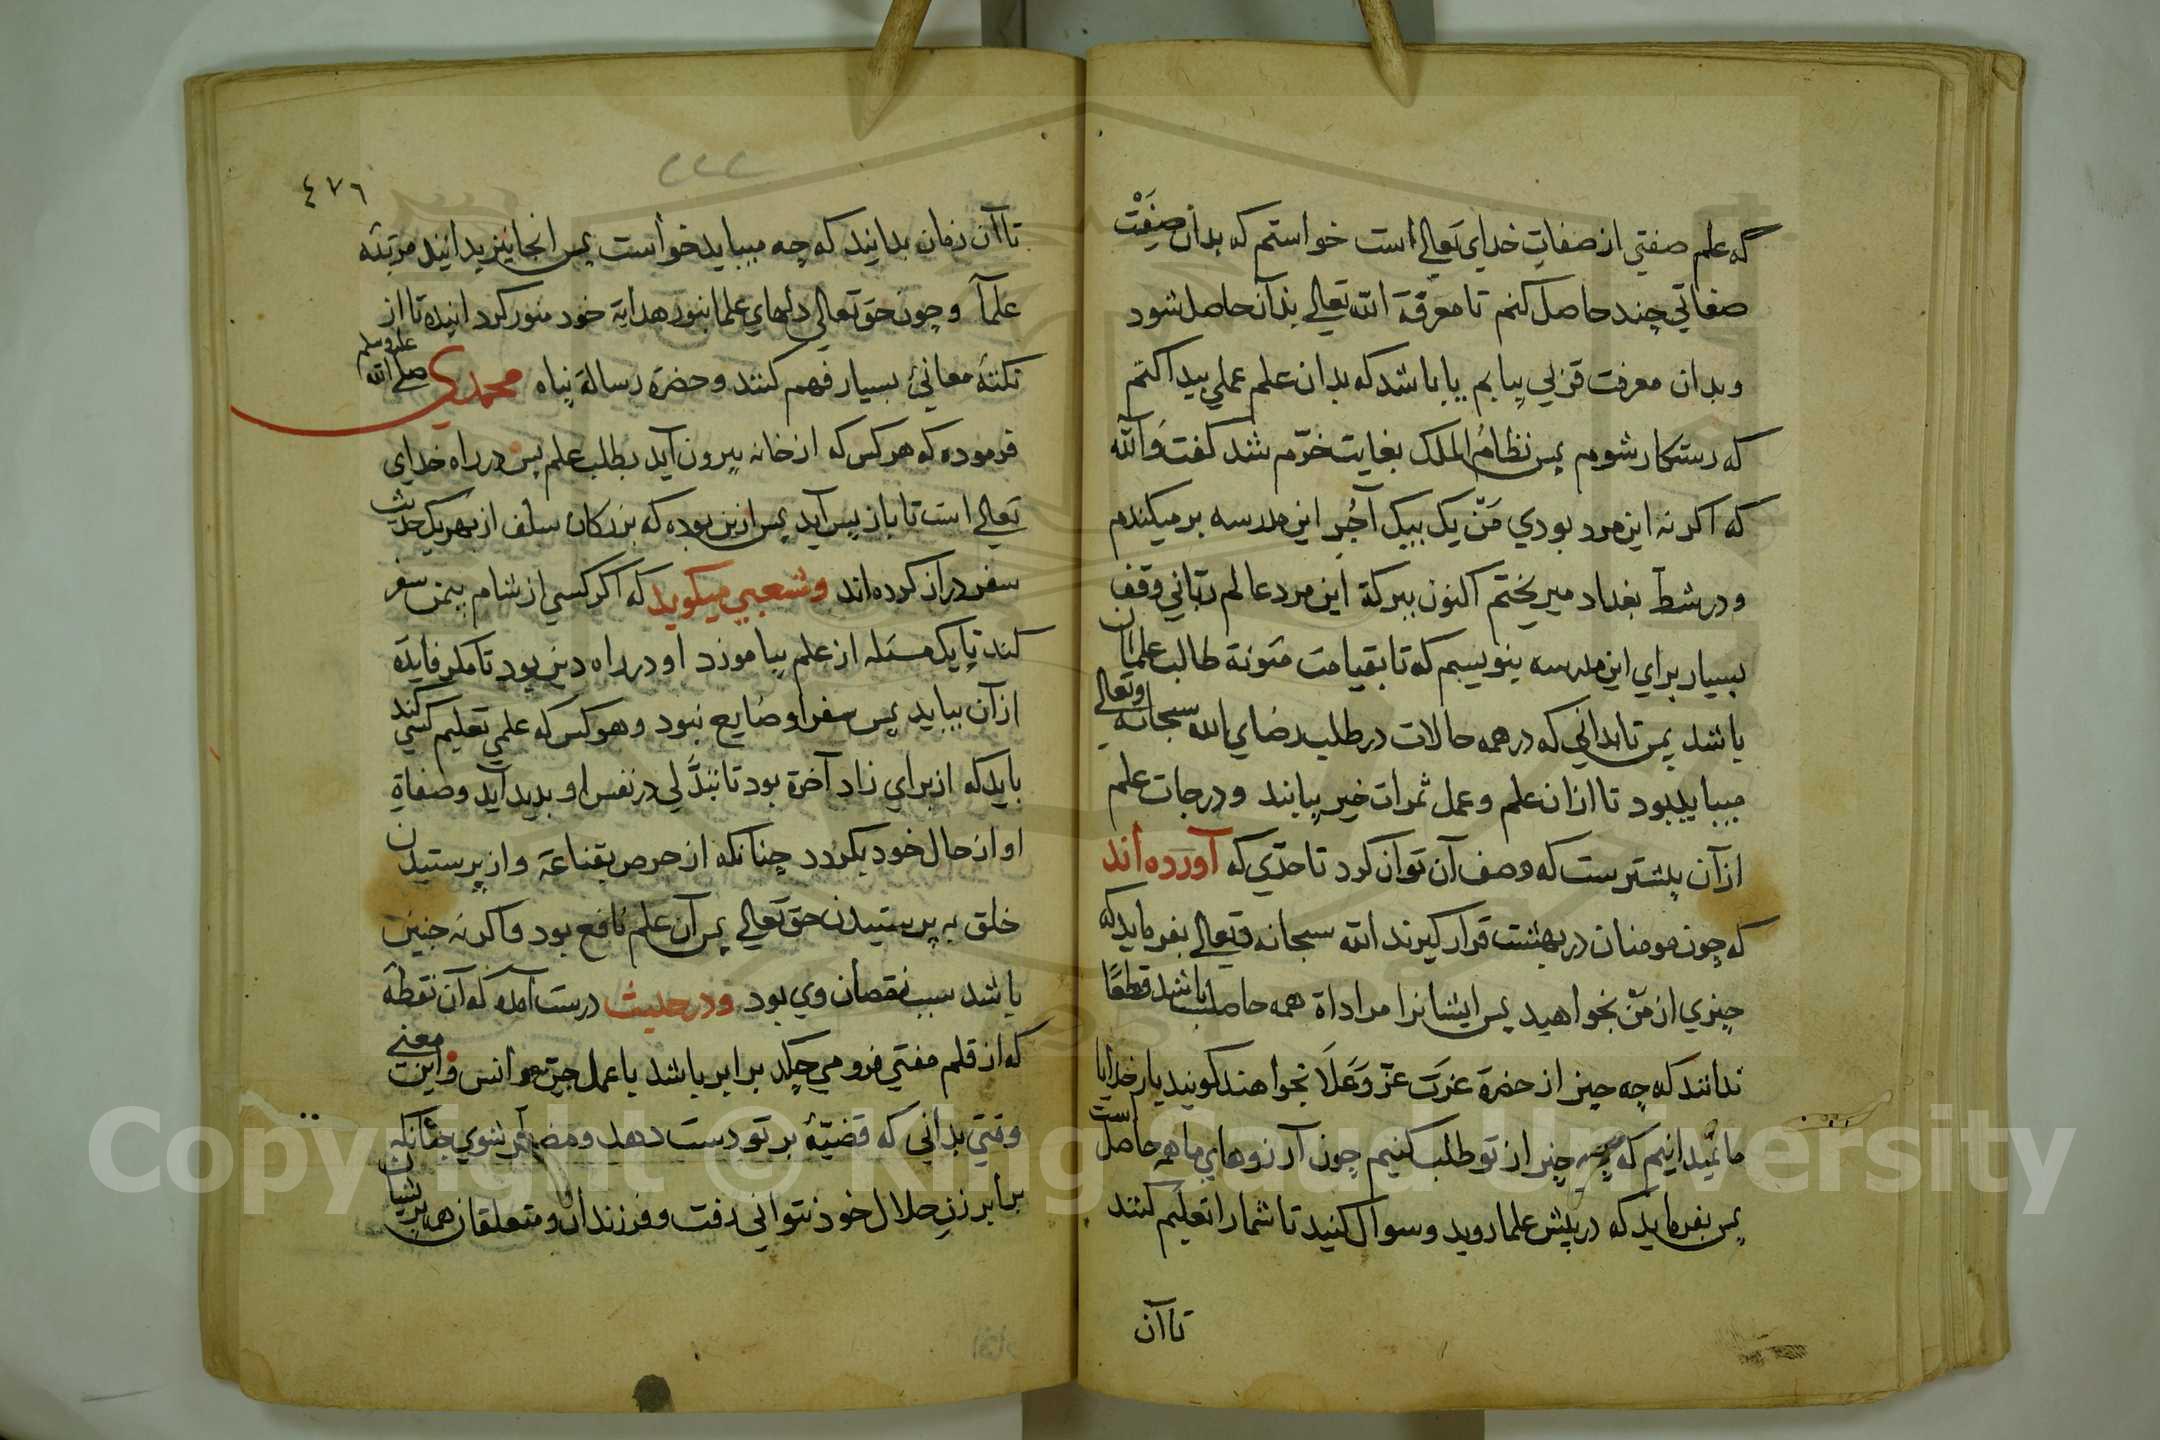 که علم صفتي از صفات خداي تعالي است خواستم که بدان صفت
صفاتي چند حاصل کنم تا معرفة الله تعالي بدان حاصل شود
و بدان معرفت قربي بيابم يا باشد که بدان علم عملي پيدا کنم
که رستکار شوم پس نظام الملک بغايت خرّم شد کفت والله
که اکر نه اين مرد بودي من يک بيک آجر اين مدرسه بر ميکندم
و در شط بغداد ميريختم اکنون ببرکة اين مرد عالم ربّاني وقف
بسيار براي اين مدرسه بنويسم که تا بقيامت مئونة طالب علمان
باشد پس تا بداني که در همه حالات در طلب رضاي الله سبحانه وتعالي
ميبايد بود تا از ان علم و عمل ثمرات خير بيابند و درجات علم
از آن پيشترست که وصف آن توان کرد تا حدّي که آورده اند
که چون مومنان در بهشت قرار کيرند الله سبحانه وتعالي بفرمايد که
چيزي از من بخواهيد پس ايشانرا مرادات همه حاصل باشد قطعًا
ندانند که چه چيز از حضرة عزت عزّ وعلا بخواهند کويند بار خدايا
ما نميدانيم که چه چيز از تو طلب کنيم چون آرزوهاي ما همه حاصل است
پس بفرمايد که در پيش علما رويد و سوال کنيد تا شما را تعليم کنند
تا آن
٤٧٦
تا آن زمان بدانند که چه ميبايد خواست پس انجا نيز بدانند مرتبهٔ
علمآ و چون حق تعالي دلهاي علما بنور هداية خود منور کردانيده تا از
نکتهٔ معانئ بسيار فهم کنند و حضرة رسالة پناه محمدي صلي الله عليه وسلم
فرموده که هر کس که از خانه بيرون آيد بطلب علم پس در راه خداي
تعالي است تا باز پس آيد پس ازين بوده که بزرکان سلف از بهر يک حديث
سفر دراز کرده اند وشعبي ميکويد که اکر کسي از شام بيمن سفر
کند تا يک مسئله از علم بياموزد او در راه دين بود تا مکر فايدهٔ
از آن بيابد پس سفر او ضايع نبود و هر کس که علمي تعليم کسي کند
بايد که از براي زاد آخرة بود تا تبدّلي در نفس او بديد آيد و صفاة
او از حال خود بکردد چنانکه از حرص بقناعة و از پرستيدن
خلق به پرستيدن حق تعالي پس آن علم نافع بود و اکر نه چنين
باشد سبب نقصان وي بود ودر حديث درست آمده که آن نقطهٔ
که از قلم مفتي فرو مي چکد برابر باشد با عمل جن و انس و اين معني
وقتي بداني که قضيّهٔ بر تو دست دهد و مضطر شوي چنانکه
برابر زن حلال خود نتواني رفت و فرزندان و متعلقان همه پريشان